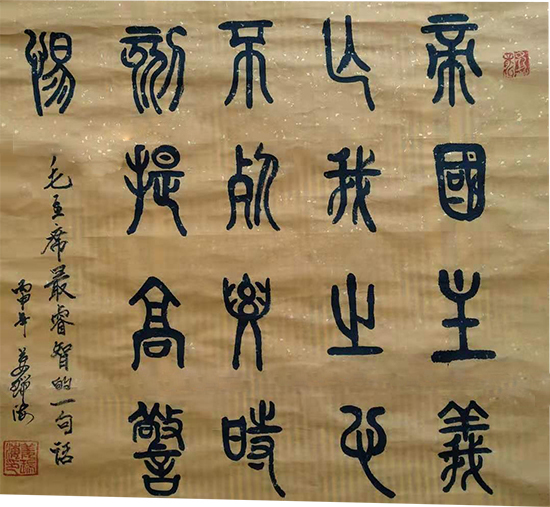 帝國主義
亡我之心
不死與時
刻提高警
惕
毛主席最睿智的一句話
丙申年